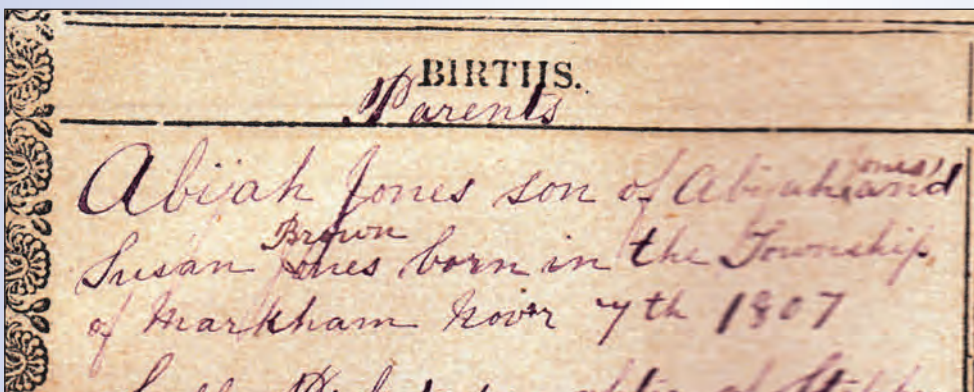 BIRTHS.
Parents
Abijah Jones son of Abijah Jones and
Susan Brown Jones born in the Township
of Markham Novr 7th 1807